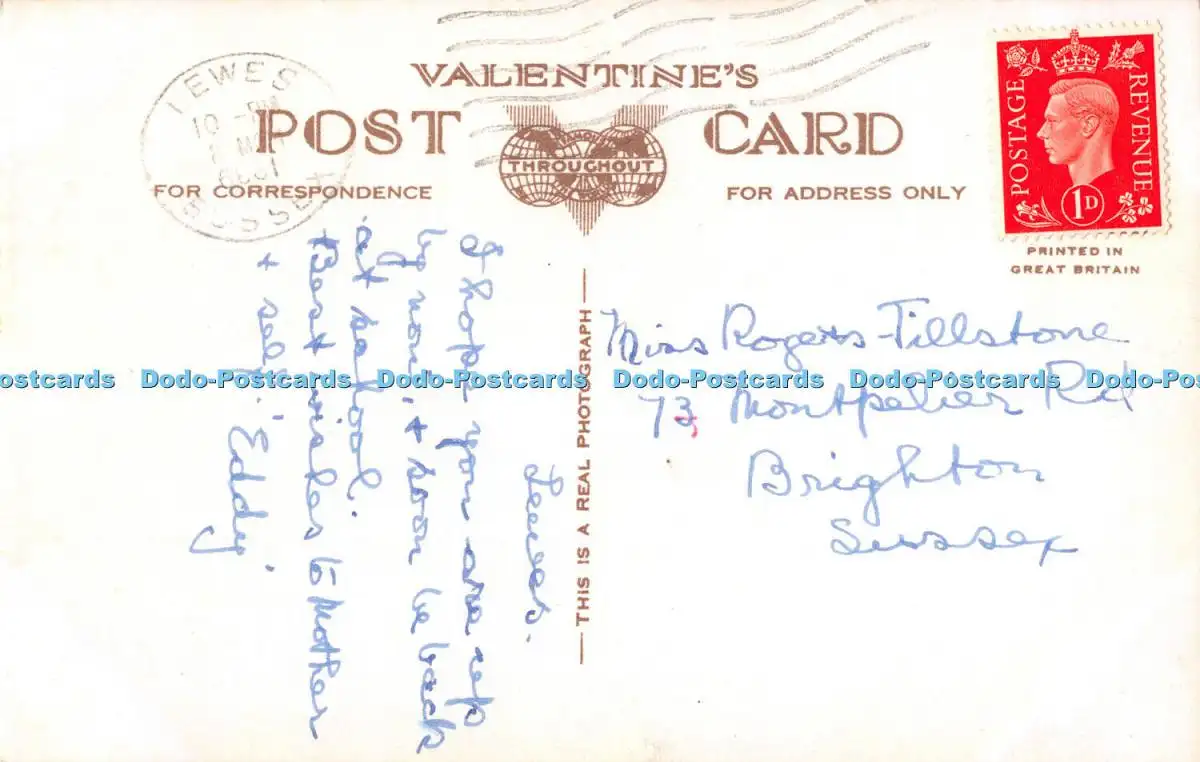 LEWES
10 - PM
SUSSEX
VALENTINE'S
POST CARD
THROUGHOUT
FOR CORRESPONDENCE
FOR ADDRESS ONLY
POSTAGE REVENUE
1D
PRINTED IN
GREAT BRITAIN
THIS IS A REAL PHOTOGRAPH
Lewes.
I hope you are up
by now, + soon be back
at school.
Best wishes to Mother
+ self. 'Eddy'
Miss Rogers-Tillstone
73, Montpelier Rd
Brighton
Sussex
Dodo-Postcards Dodo-Postcards Dodo-Postcards Dodo-Postcards